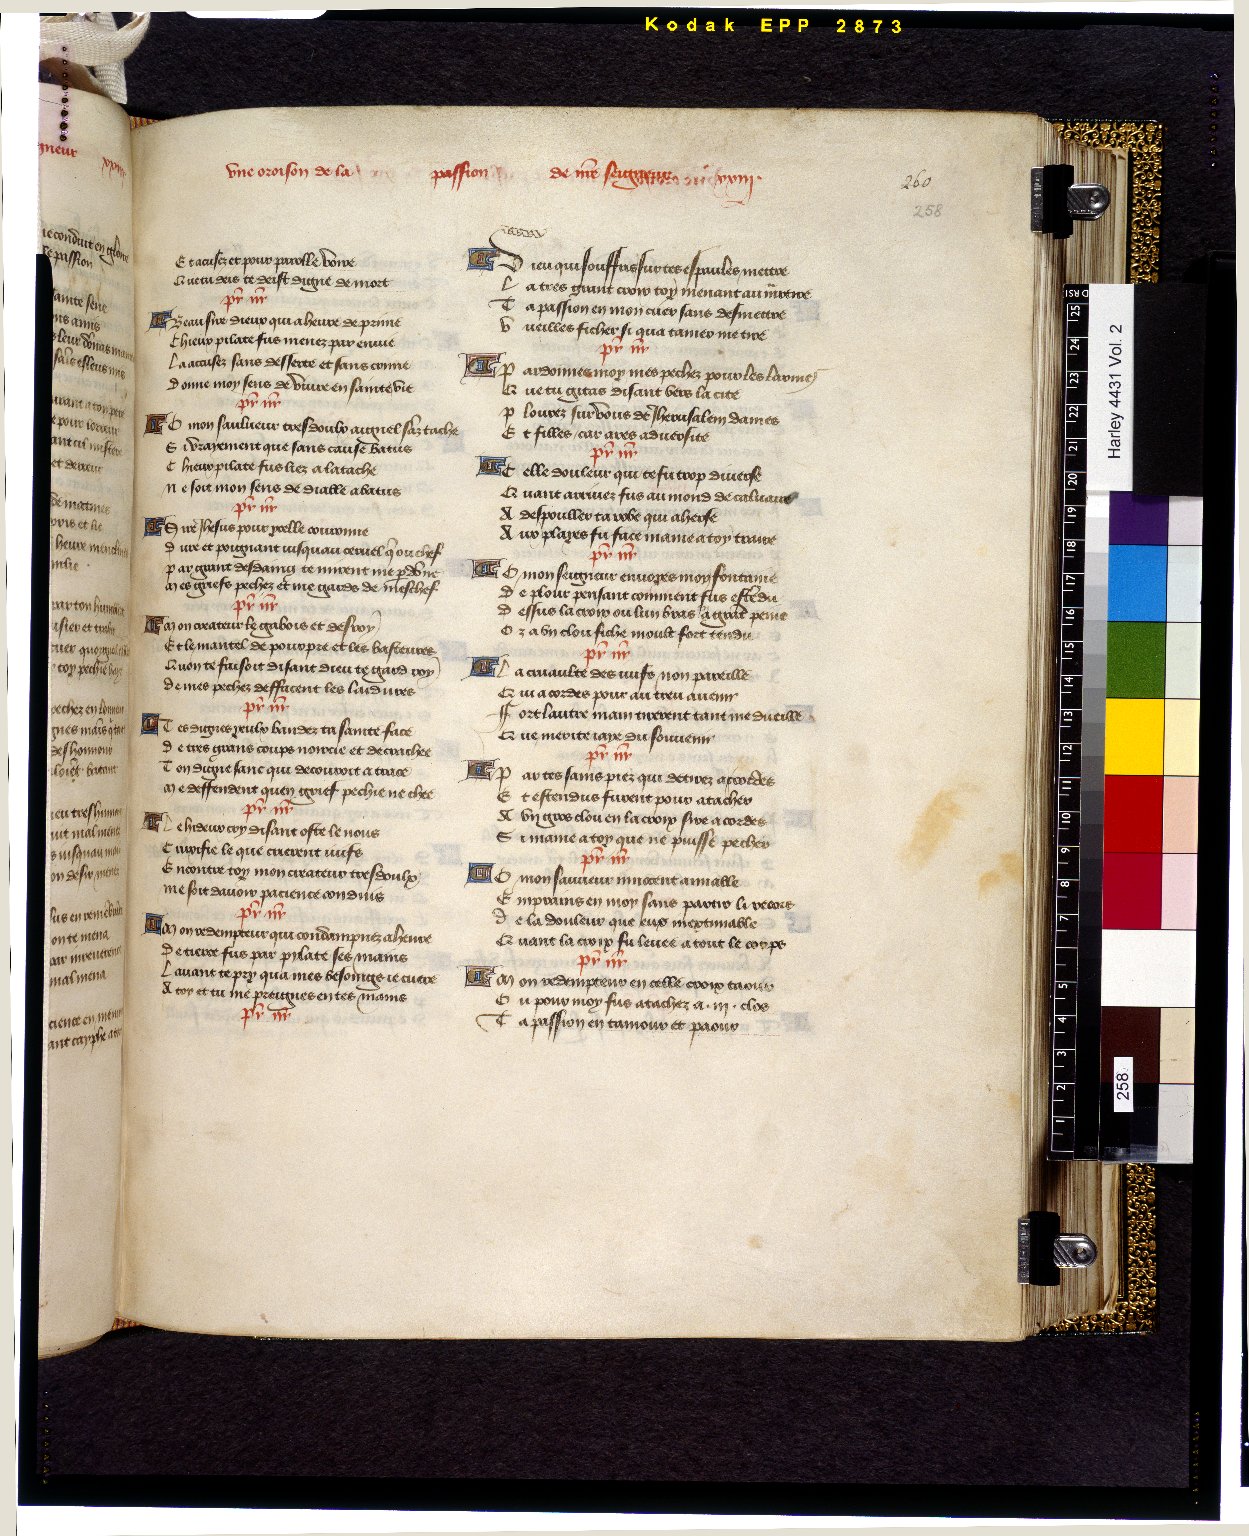 Kodak EPP 2873
vne oroison de la passion de nr̄e seigneur xxiij.
260
258
E t acusez et pour parolle voire
Q ue tu deis te deist digne de mort
pr̄ nr̄
Beau sire dieux qui a heure de prime
Chieux pilate fus menez par enuie
La acusez sans desserte et sans crime
Donne moy sens de viure en saincte vie
pr̄ nr̄
O mon sauluieur tres doulx aignel sāz tache
S i vrayement que sans cause batus
C hieux pilate fus liez a latache
N e soit mon sens de diable abatus
pr̄ nr̄
Sire Jhesus pour celle couronne
D ure et poignant iusquau ceruel q̄ ou chef
P ar grant desdaing te mirent me p̄dōne
M es griefs pechez et me gards de meschef
pr̄ nr̄
Mon createur le gabois et desroy
E t le mantel de pourpre et les basteures
Q uon te faisoit disant dieu te gard roy
D e mes pechez deffacent les laidures
pr̄ nr̄
T es dignes yeulx bandez ta sainte face
D e tres grans coups noircie et decrachee
T on digne sanc qui decouroit a trace
M e deffendent quen grief pechie ne chee
pr̄ nr̄
L e hideux cry disant oste le nous
C rucifie le que crierent iuifs
E ncontre toy mon createur tresdoulx
M e soit dauoir pacience conduis
pr̄ nr̄
M on redempteur qui condampnez a heure
D e tierce fus par pylate ses mains
L auant te pry qua mes besoings ie cuere
A toy et tu me preignes en tes mains
pr̄ nr̄
D ieu qui souffris sur tes espaules mettre
L a tres grant croix toy menant au martire
T a passion en mon cuer sans desmettre
V ueilles ficher si qua tamer me tire
pr̄ nr̄
P ardonnes moy mes pechez pour les larmes
Q ue tu gitas disant vers la cite
P lourez sur vous de Jherusalem dames
E t filles / car ares aduersite
pr̄ nr̄
C elle douleur qui te fu trop diuerse
Q uant arriuez fus au mond de caluaire
A despouller ta robe qui aherse
A ux playes fu face mame a toy traire
pr̄ nr̄
O mon seigneur enuoyes moy fontaine
D e plour pensant comment fus estēdu
D essus la croix ou lun bras a grāt peine
O z a vn clou fiche moult fort tendu
pr̄ nr̄
L a cruaulte des iuifs non pareille
Q ui a cordes pour au treu auenir
F ort lautre main tirerent tant me dueille
Q ue merite iaye du souuenir
pr̄ nr̄
P ar tes sains piez qui detirez a cordes
E t estendus furent pour atachier
A vn gros clou en la croix sire acordes
S i mame a toy que ne puisse pecher
pr̄ nr̄
O mon sauueur innocent amiable
E mprains en moy sans partir li recors
D e la douleur que eux inextimable
Q uant la croix fu leuee a tout le corps
pr̄ nr̄
M on redempteur en celle croix taour
O u pour moy fus atachez a .iij. clos
T a passion en tamour et paour
Harley 4431 Vol. 2
258.